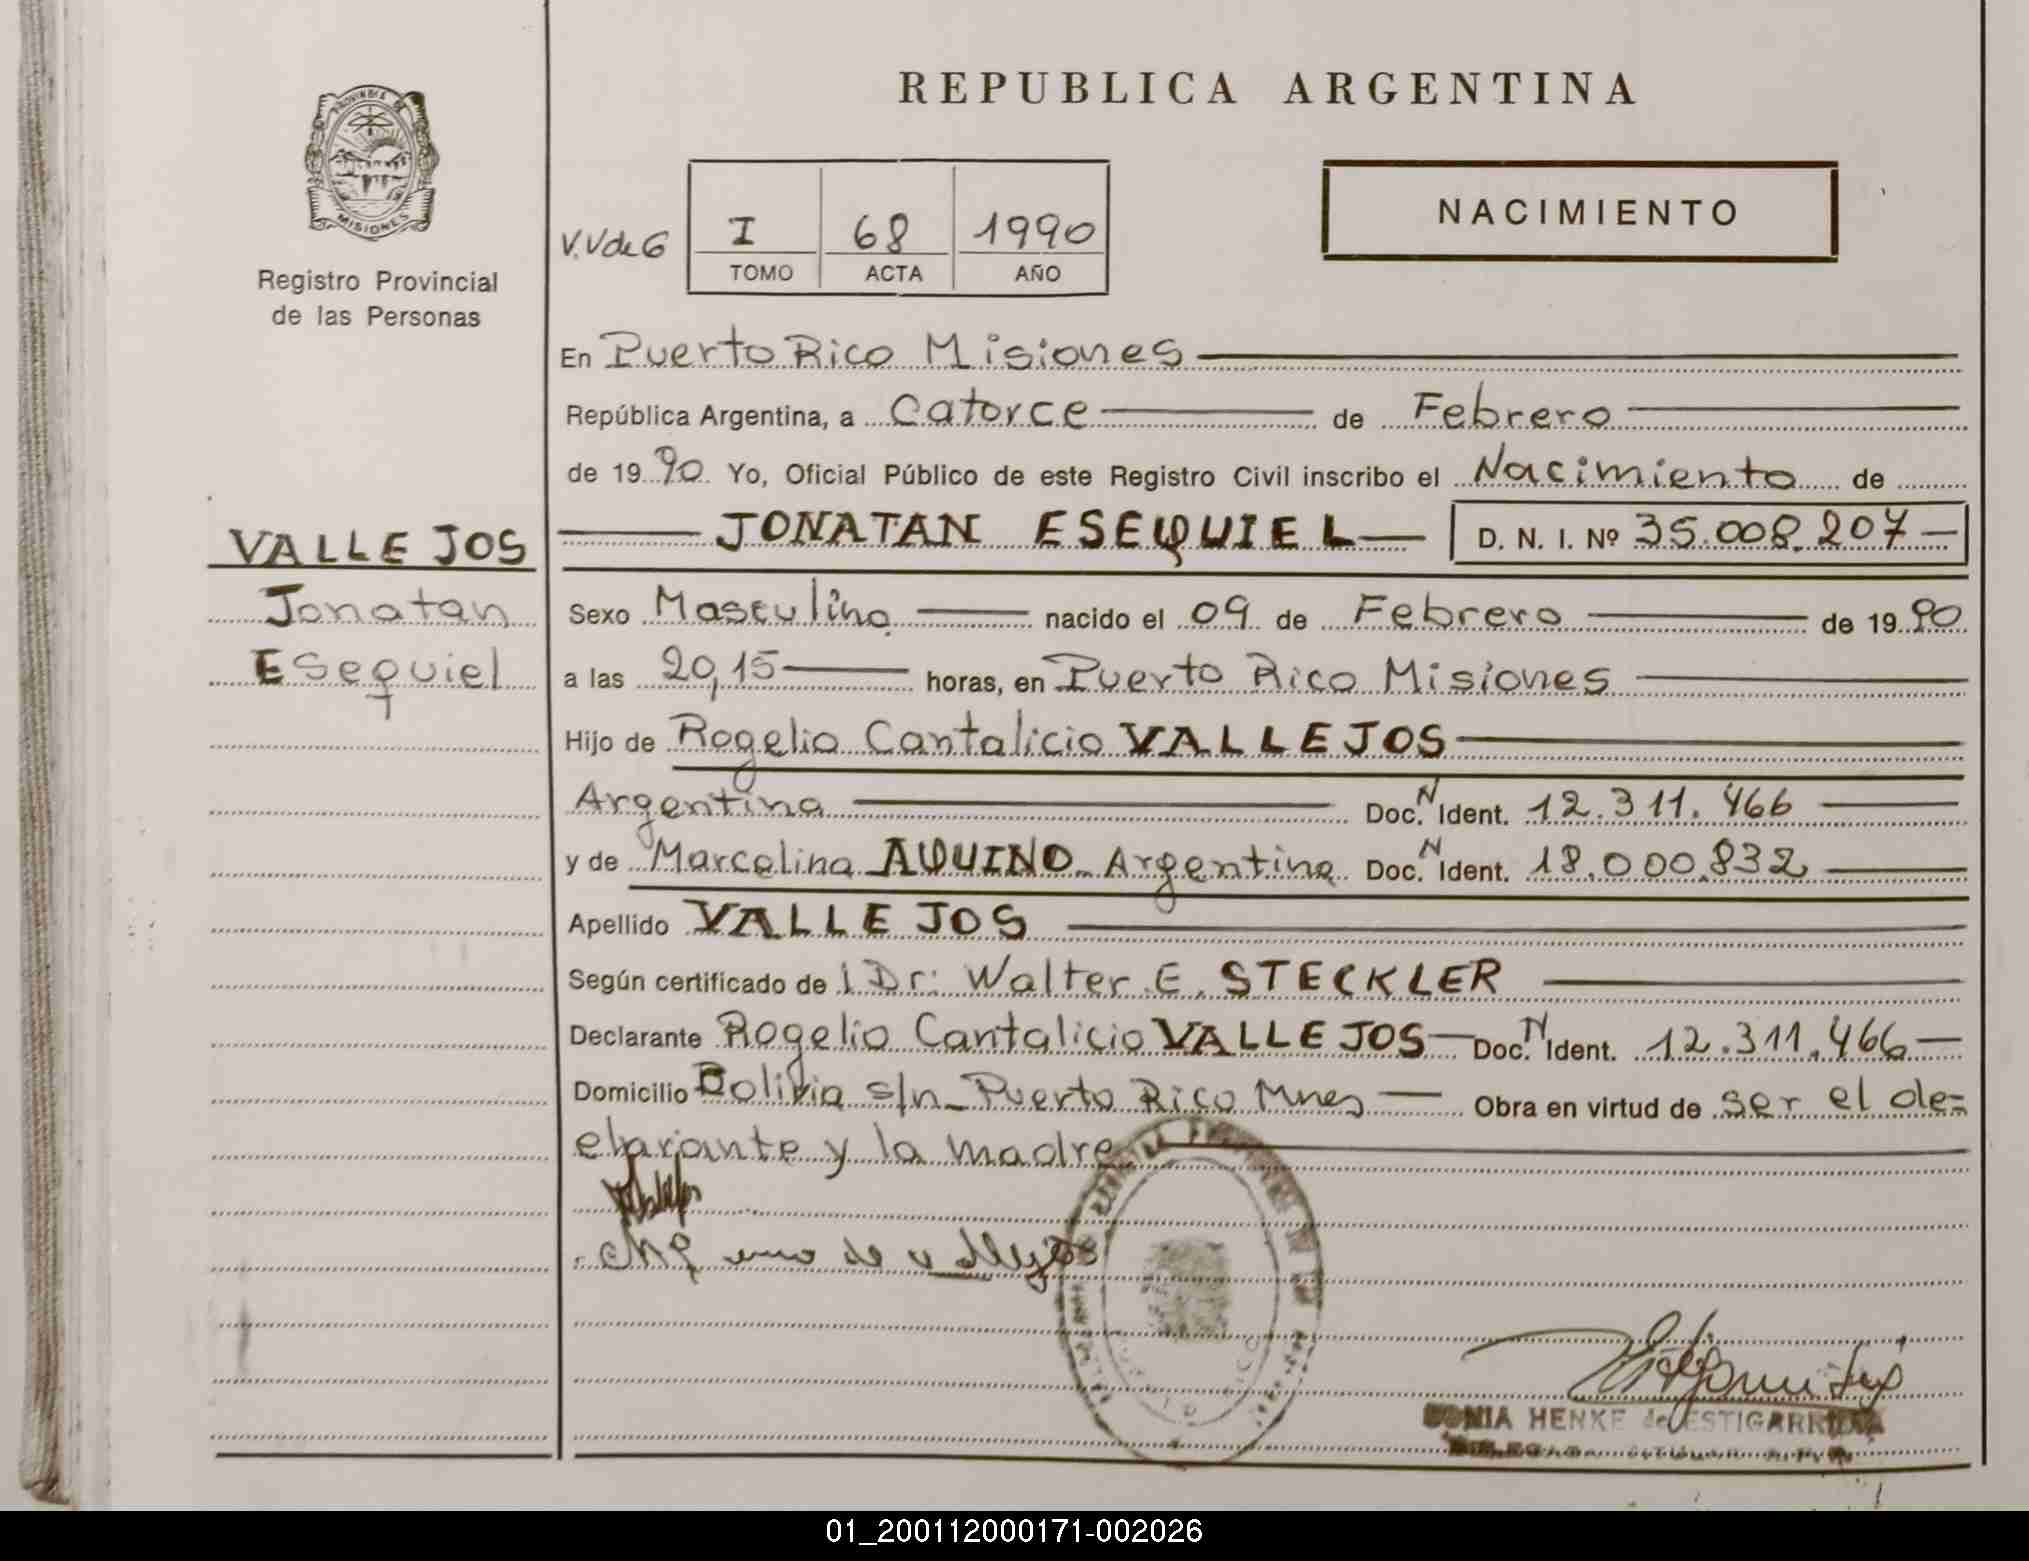 REPUBLICA ARGENTINA
PROVINCIA DE
MISIONES
Registro Provincial
de las Personas
V.V de G
I 68 1990
TOMO ACTA AÑO
NACIMIENTO
En Puerto Rico Misiones
República Argentina, a Catorce de Febrero
de 1990 Yo, Oficial Público de este Registro Civil inscribo el Nacimiento de
VALLEJOS
Jonatan
Esequiel
JONATAN ESEQUIEL D. N. I. Nº 35.008.207
Sexo Masculino nacido el 09 de Febrero de 1990
a las 20,15 horas, en Puerto Rico Misiones
Hijo de Rogelio Cantalicio VALLEJOS
Argentina Doc. N Ident. 12.311.466
y de Marcelina AQUINO Argentina Doc. N Ident. 18.000.832
Apellido VALLEJOS
Según certificado de l Dr: Walter E. STECKLER
Declarante Rogelio Cantalicio VALLEJOS Doc. N Ident. 12.311.466
Domicilio Bolivia s/n Puerto Rico Mnes Obra en virtud de ser el de=
clarante y la madre
SONIA HENKE de ESTIGARRIBIA
01_200112000171-002026